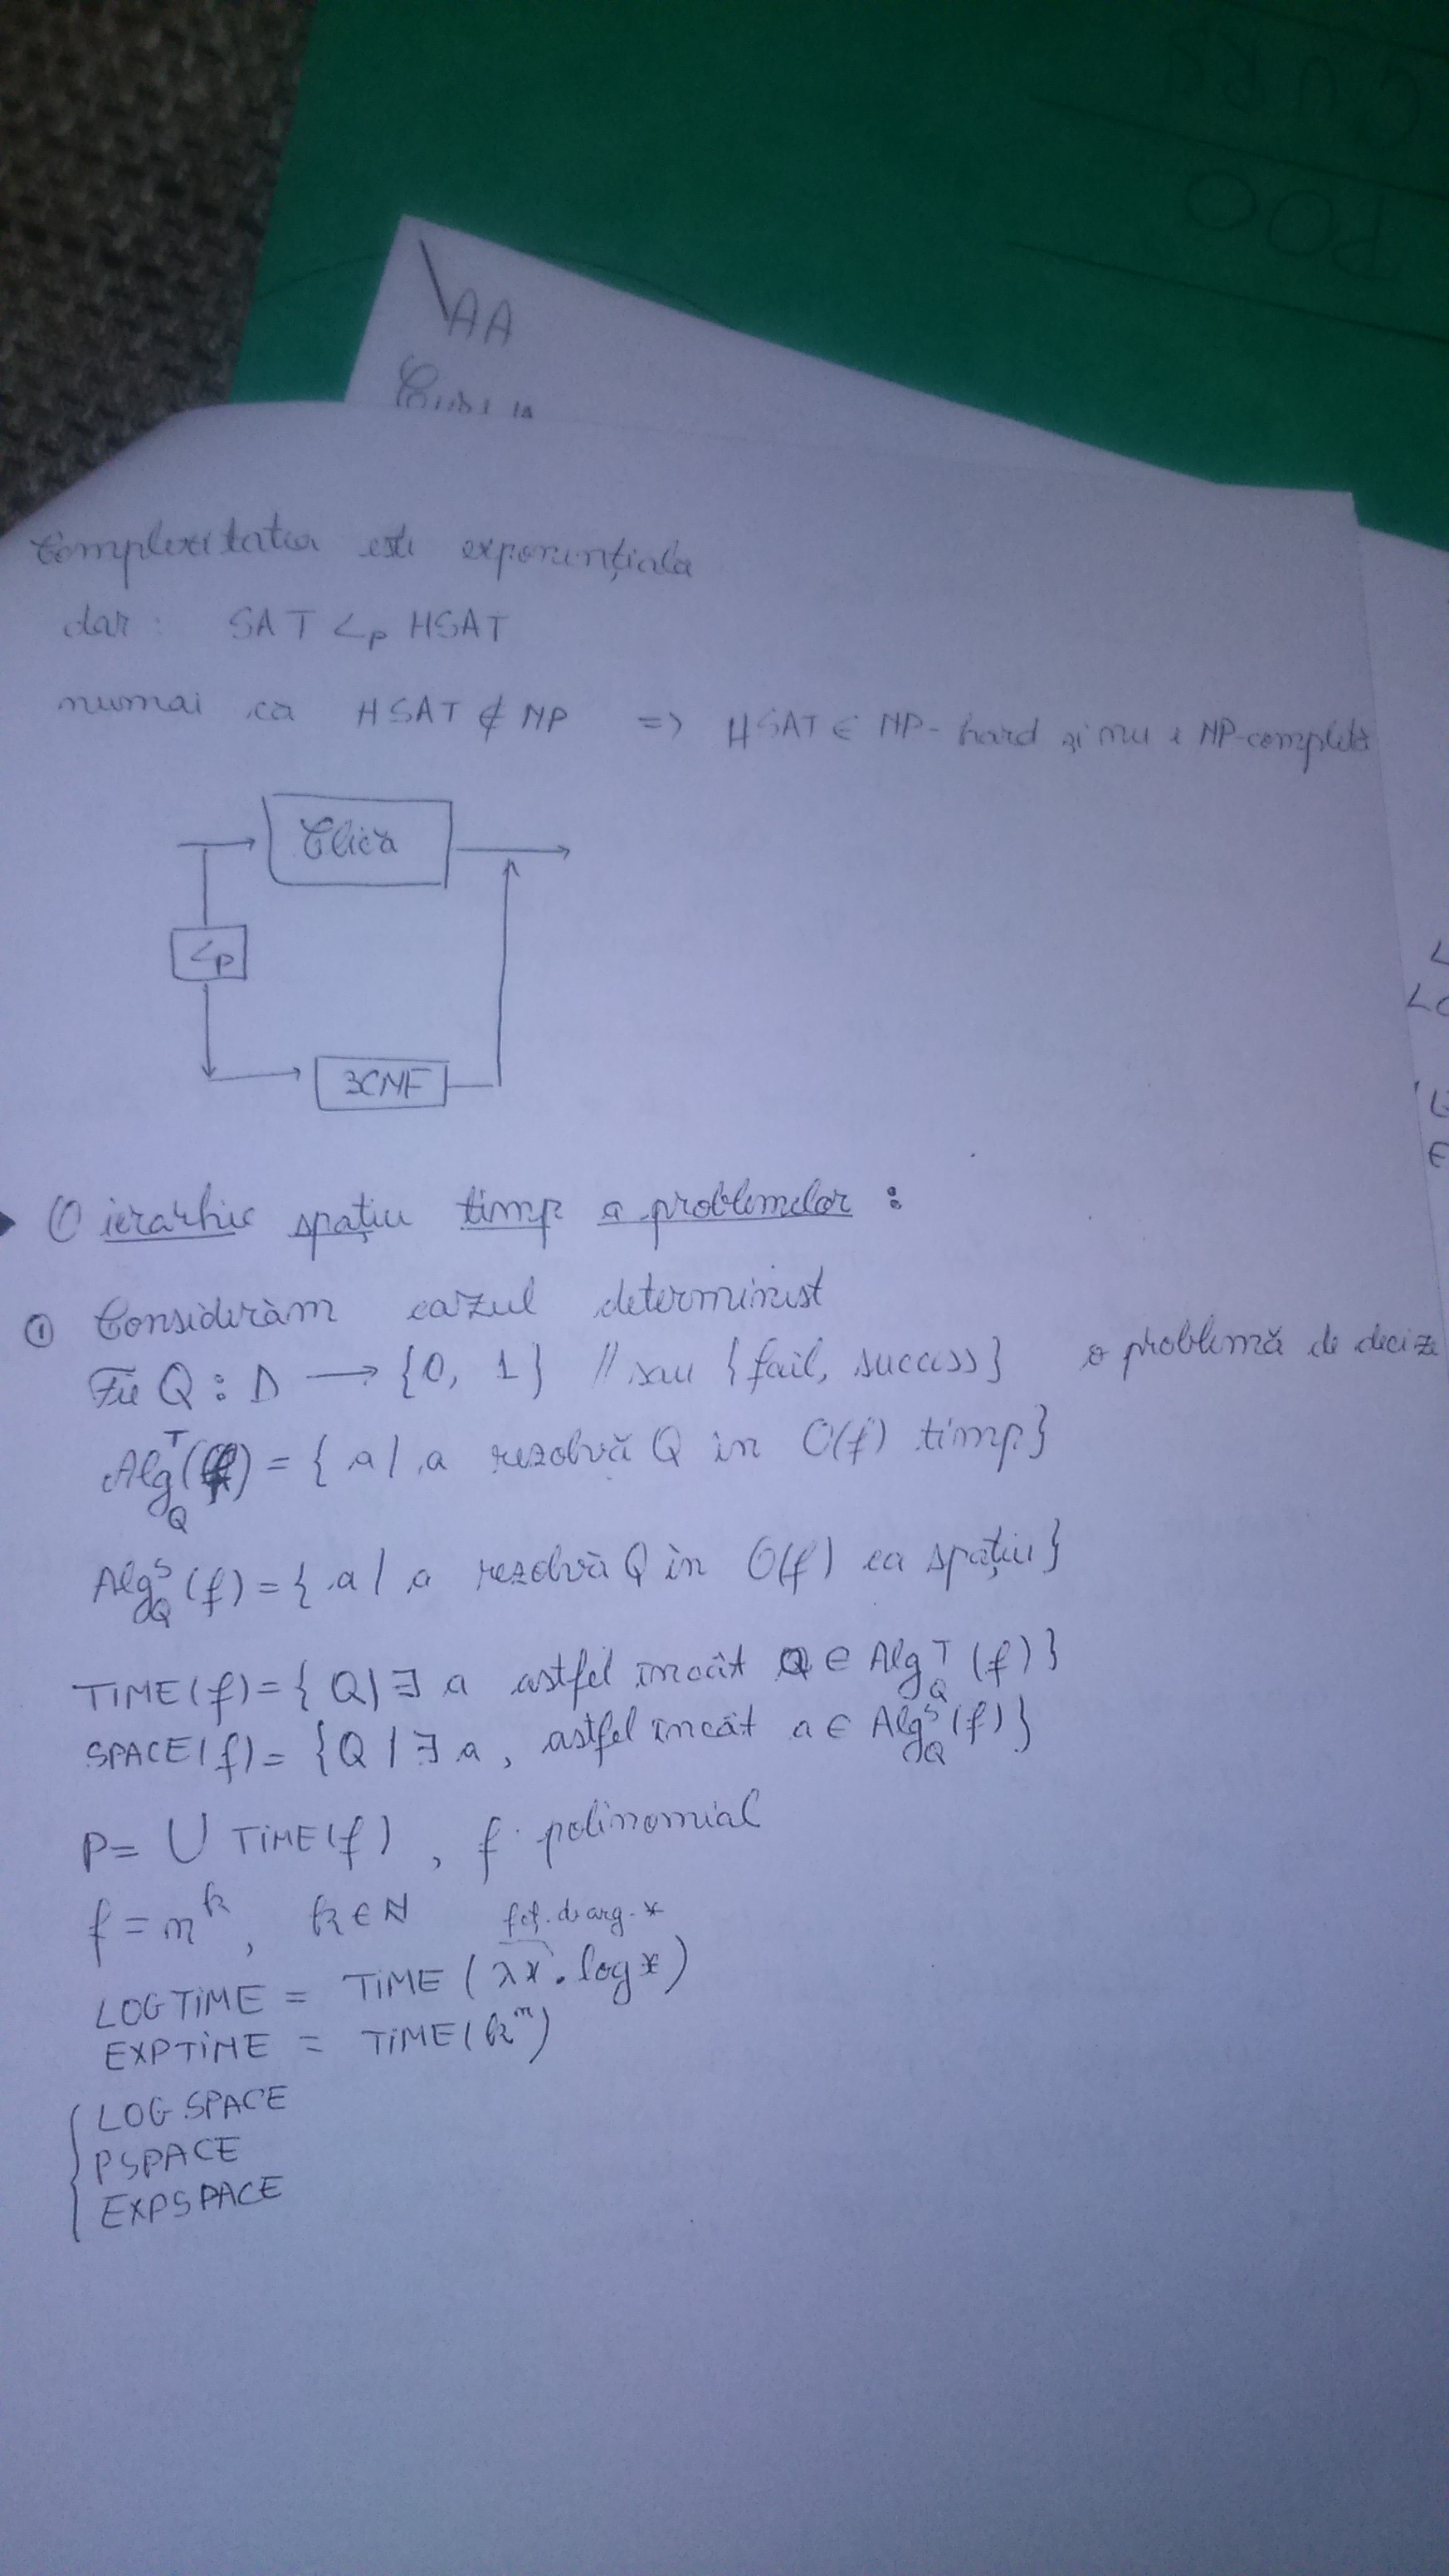 CURS
POO
AA
Complexitatea este exponențiala
dar: SAT <p HSAT
numai ca HSAT ∉ NP => HSAT ∈ NP-hard și nu e NP-completă
Clică
<p
3CNF
O ierarhie spațiu timp a problemelor :
① Considerăm cazul determinist
Fie Q : D → {0, 1} // sau {fail, success} o problemă de decizie
Alg_Q^T(f) = { a / a rezolvă Q in O(f) timp}
Alg_Q^S(f) = { a / a rezolvă Q în O(f) ca spațiu}
TIME(f) = { Q / ∃ a astfel încât Q ∈ Alg_Q^T(f)}
SPACE(f) = {Q / ∃ a, astfel încât a ∈ Alg_Q^S(f)}
P = ∪ TIME(f), f polinomial
f = n^k, k ∈ N
fcț. de arg. x
LOGTIME = TIME (λx . log x)
EXPTIME = TIME(k^n)
LOGSPACE
PSPACE
EXPSPACE